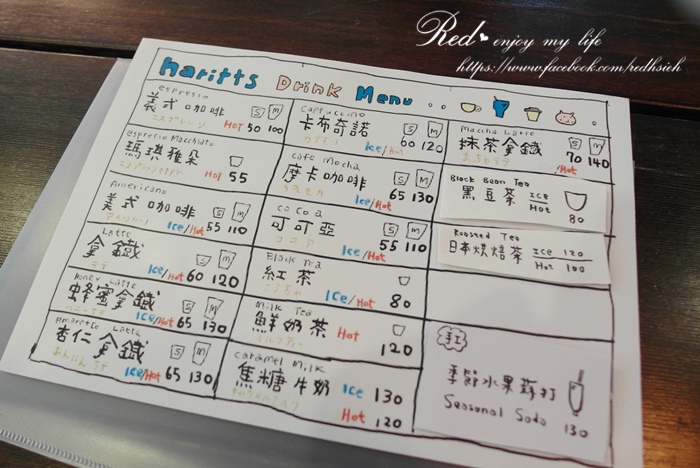 Red enjoy my life
https://www.facebook.com/redhsieh
haritts Drink Menu
espresso
義式咖啡 S M
エスプレッソ Hot 50 100
espresso Macchiato
瑪琪雅朵
Hot 55
Americano
美式咖啡 S M
アメリカーノ Ice/Hot 55 110
Latte
拿鐵 S M
ラテ Ice/Hot 60 120
Honey Latte
蜂蜜拿鐵 S M
Ice/Hot 65 130
Amaretto Latte
杏仁拿鐵 S M
あんにんラテ Ice/Hot 65 130
Cappuccino
卡布奇諾 S M
カプチーノ Ice/Hot 60 120
Cafe mocha
摩卡咖啡 S M
カフェモカ Ice/Hot 65 130
Cocoa
可可亞 S M
ココア Ice/Hot 55 110
Black Tea
紅茶
Ice/Hot 80
Milk Tea
鮮奶茶 Hot
ミルクティー 120
caramel Milk
焦糖牛奶 Ice 130
キャラメルミルク Hot 120
Maccha Latte
抹茶拿鐵 S M
まっちゃラテ Ice/Hot 70 140
Black Bean Tea
黑豆茶 Ice
Hot 80
Roasted Tea
日本烘焙茶 Ice 120
Hot 100
手工
季節水果蘇打
Seasonal Soda 130